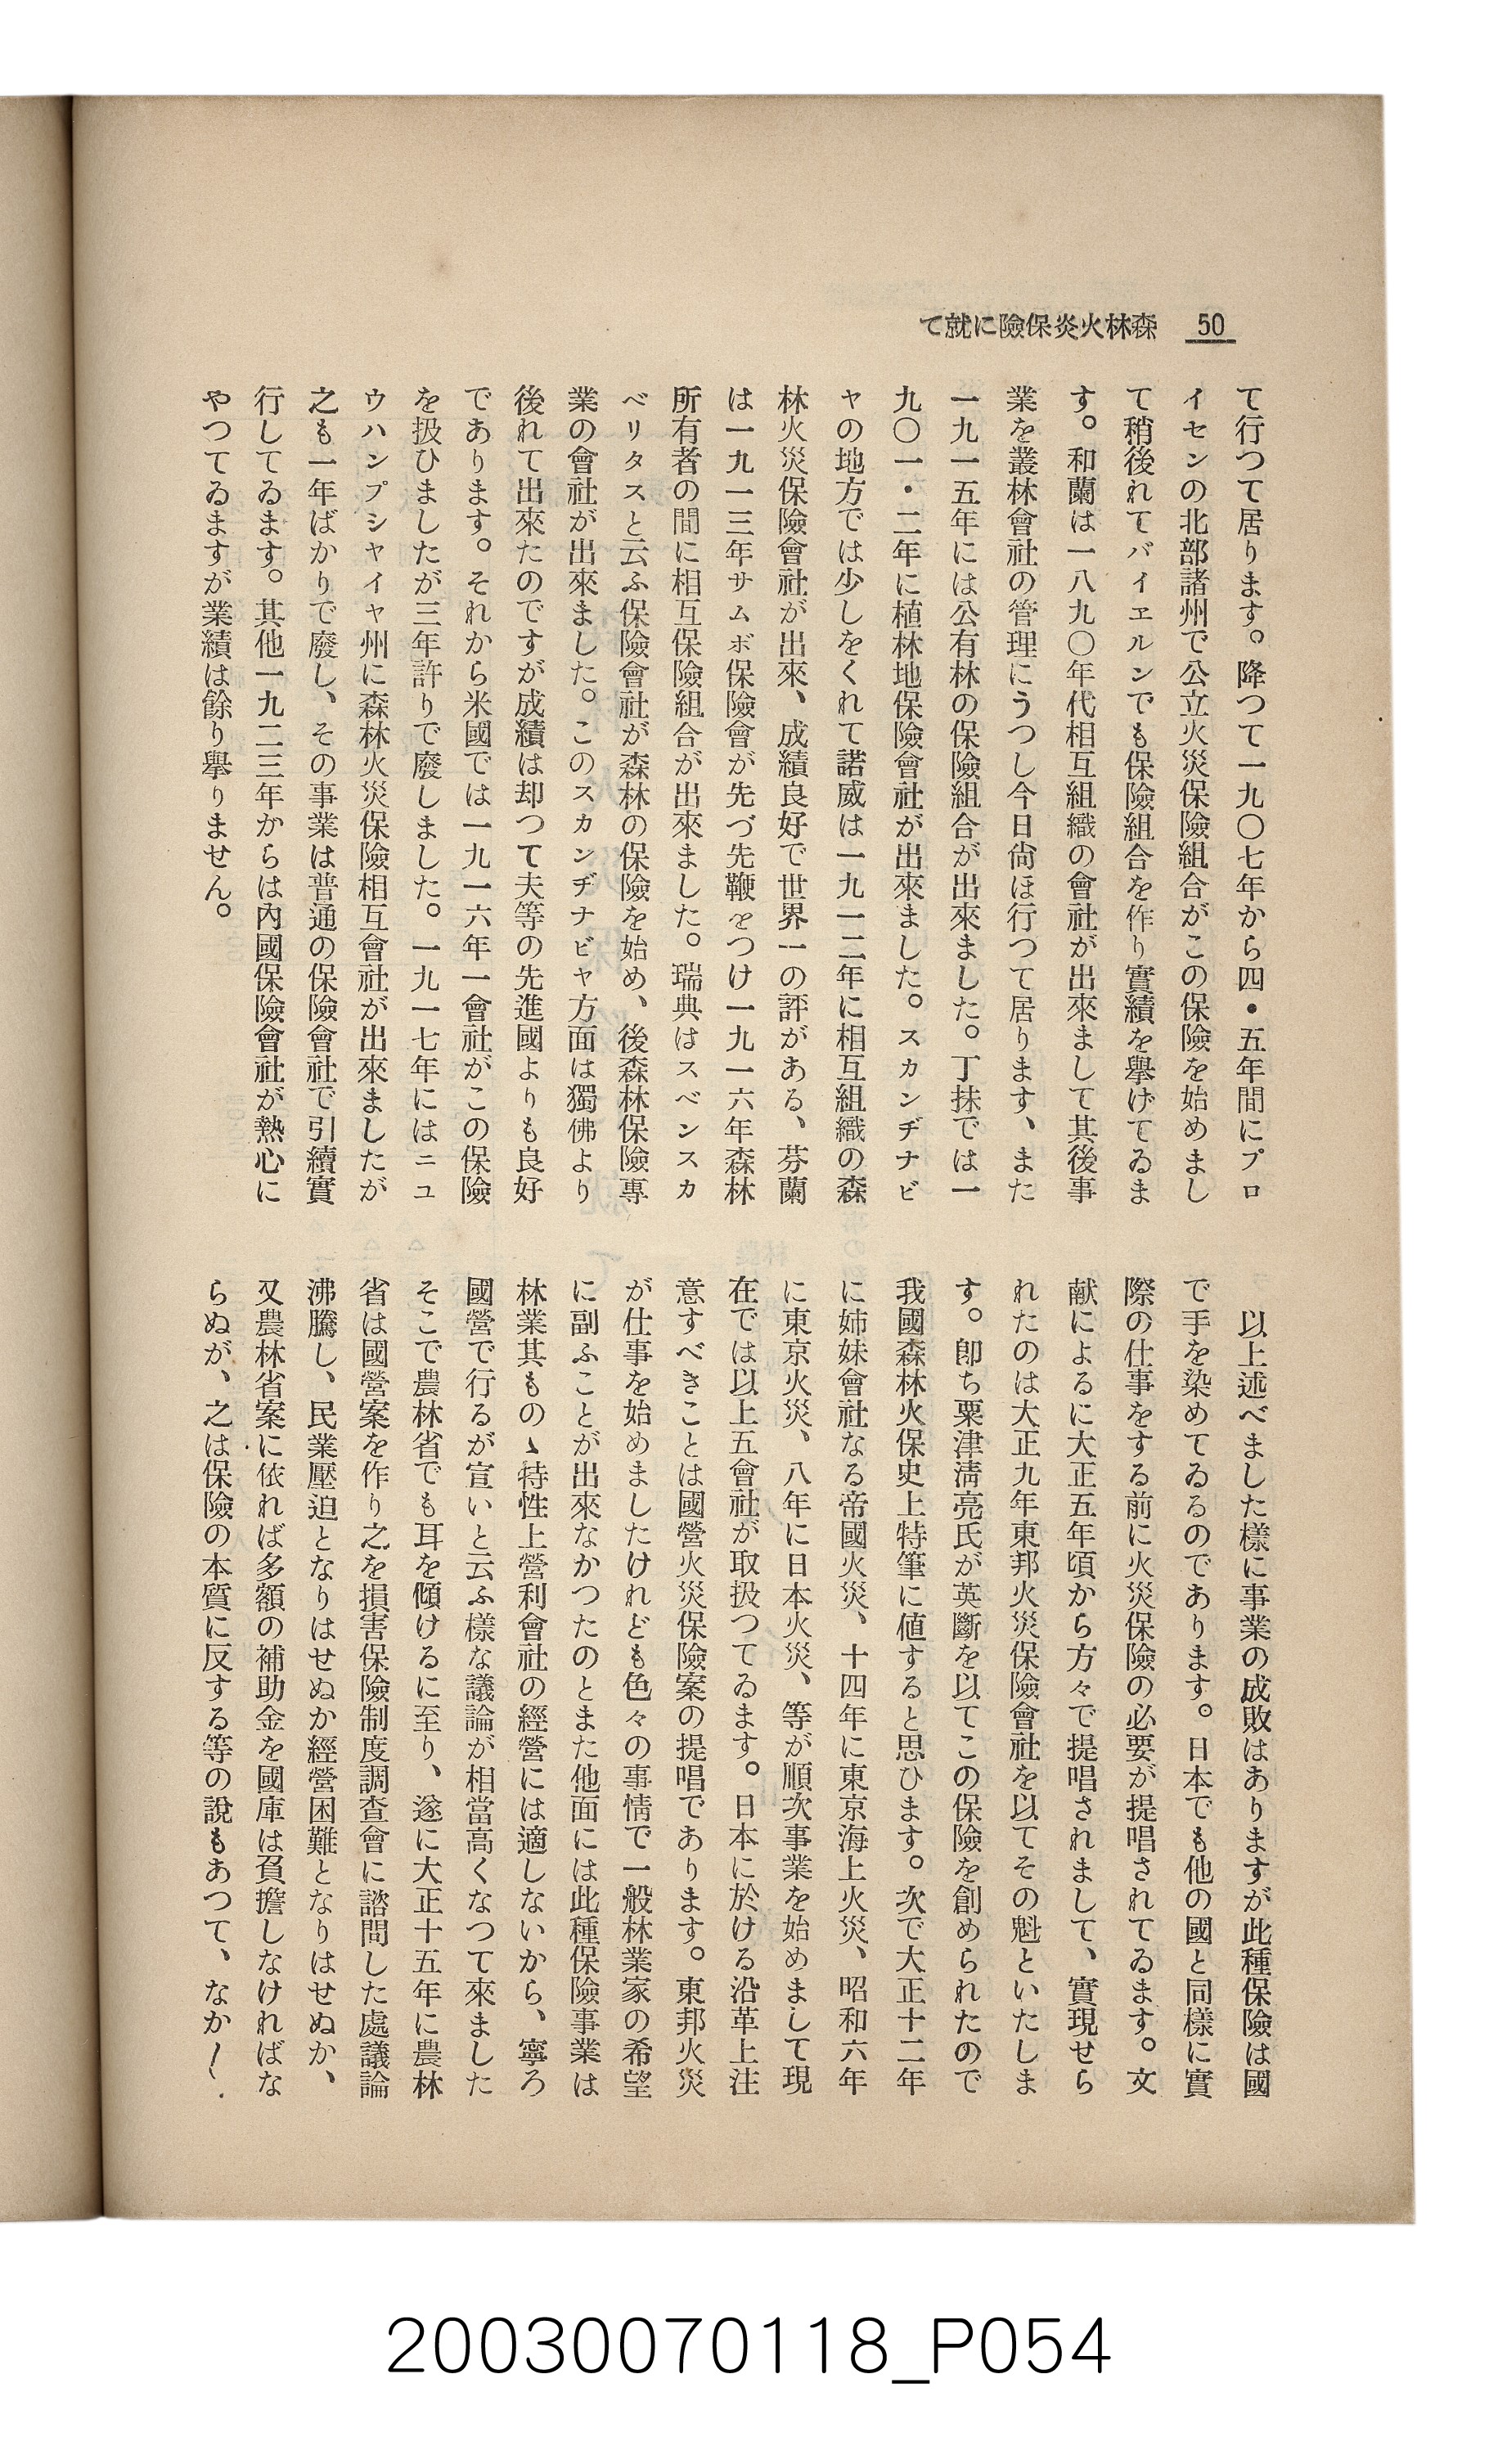 50 森林火災保險に就て
て行つて居ります。降つて一九〇七年から四・五年間にプロ
イセンの北部諸州で公立火災保險組合がこの保險を始めまし
て稍後れてバイエルンでも保險組合を作り實績を擧げてゐま
す。和蘭は一八九〇年代相互組織の會社が出來まして其後事
業を叢林會社の管理にうつし今日尙ほ行つて居ります、また
一九一五年には公有林の保險組合が出來ました。丁抹では一
九〇一・二年に植林地保險會社が出來ました。スカンヂナビ
ヤの地方では少しをくれて諾威は一九一二年に相互組織の森
林火災保險會社が出來、成績良好で世界一の評がある、芬蘭
は一九一三年サムボ保險會が先づ先鞭をつけ一九一六年森林
所有者の間に相互保險組合が出來ました。瑞典はスベンスカ
ベリタスと云ふ保險會社が森林の保險を始め、後森林保險專
業の會社が出來ました。このスカンヂナビヤ方面は獨佛より
後れて出來たのですが成績は却つて夫等の先進國よりも良好
であります。それから米國では一九一六年一會社がこの保險
を扱ひましたが三年許りで廢しました。一九一七年にはニユ
ウハンプシヤイヤ州に森林火災保險相互會社が出來ましたが
之も一年ばかりで廢し、その事業は普通の保險會社で引續實
行してゐます。其他一九二三年からは內國保險會社が熱心に
やつてゐますが業績は餘り擧りません。
以上述べました樣に事業の成敗はありますが此種保險は國
で手を染めてゐるのであります。日本でも他の國と同樣に實
際の仕事をする前に火災保險の必要が提唱されてゐます。文
献によるに大正五年頃から方々で提唱されまして、實現せら
れたのは大正九年東邦火災保險會社を以てその魁といたしま
す。卽ち粟津淸亮氏が英斷を以てこの保險を創められたので
我國森林火保史上特筆に値すると思ひます。次で大正十二年
に姉妹會社なる帝國火災、十四年に東京海上火災、昭和六年
に東京火災、八年に日本火災、等が順次事業を始めまして現
在では以上五會社が取扱つてゐます。日本に於ける沿革上注
意すべきことは國營火災保險案の提唱であります。東邦火災
が仕事を始めましたけれども色々の事情で一般林業家の希望
に副ふことが出來なかつたのとまた他面には此種保險事業は
林業其ものゝ特性上營利會社の經營には適しないから、寧ろ
國營で行るが宣いと云ふ樣な議論が相當高くなつて來ました
そこで農林省でも耳を傾けるに至り、遂に大正十五年に農林
省は國營案を作り之を損害保險制度調査會に諮問した處議論
沸騰し、民業壓迫となりはせぬか經營困難となりはせぬか、
又農林省案に依れば多額の補助金を國庫は負擔しなければな
らぬが、之は保險の本質に反する等の說もあつて、なか〱
20030070118_P054